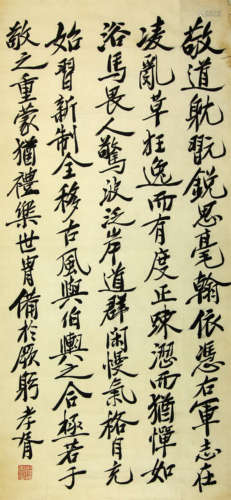 敬道耽翫銳思毫翰依憑右軍志在
凌亂草狂逸而有度正疎澀而猶憚如
浴馬畏人驚波泛岸道群閑慢氣格自充
始習新制全移古風與伯輿之合極若子
敬之童蒙猶禮樂世胄備於厥躬孝胥